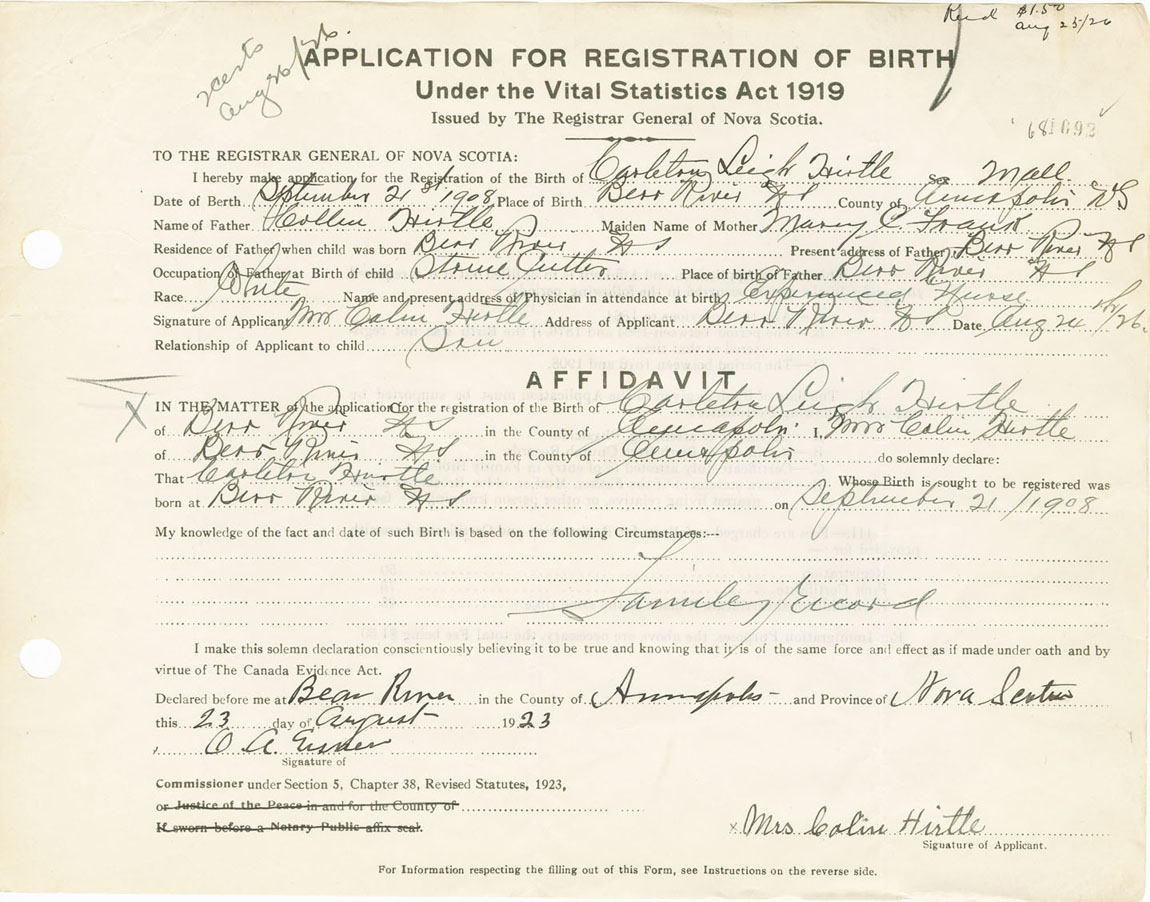 Rec'd $1.50
Aug 25/26
2 certs
Aug 26/26
APPLICATION FOR REGISTRATION OF BIRTH
Under the Vital Statistics Act 1919
Issued by The Registrar General of Nova Scotia.
681092
TO THE REGISTRAR GENERAL OF NOVA SCOTIA:
I hereby make application for the Registration of the Birth of Carleton Leigh Hirtle Sex Mall
Date of Berth September 21st 1908 Place of Birth Bear River NS County of Annapolis NS
Name of Father Collin Hirtle Maiden Name of Mother Marry C. Frank
Residence of Father when child was born Bear River NS Present address of Father Bear River NS
Occupation of Father at Birth of child Stone Cutter Place of birth of Father Bear River NS
Race White Name and present address of Physician in attendance at birth Experienced Nurse
Signature of Applicant Mrs Colin Hirtle Address of Applicant Bear River NS Date Aug 24th/26.
Relationship of Applicant to child Son
AFFIDAVIT
X
IN THE MATTER of the application for the registration of the Birth of Carleton Leigh Hirtle
of Bear River NS in the County of Annapolis I, Mrs Colin Hirtle
of Bear River NS in the County of Annapolis do solemnly declare:
That Carleton Hirtle Whose Birth is sought to be registered was
born at Bear River NS on September 21/1908
My knowledge of the fact and date of such Birth is based on the following Circumstances:--
Family record
I make this solemn declaration conscientiously believing it to be true and knowing that it is of the same force and effect as if made under oath and by
virtue of The Canada Evidence Act.
Declared before me at Bear River in the County of Annapolis and Province of Nova Scotia
this 23 day of August 1923
O. A. Eisner
Signature of
Commissioner under Section 5, Chapter 38, Revised Statutes, 1923,
or Justice of the Peace in and for the County of
If sworn before a Notary Public affix seal.
x Mrs Colin Hirtle
Signature of Applicant.
For Information respecting the filling out of this Form, see Instructions on the reverse side.